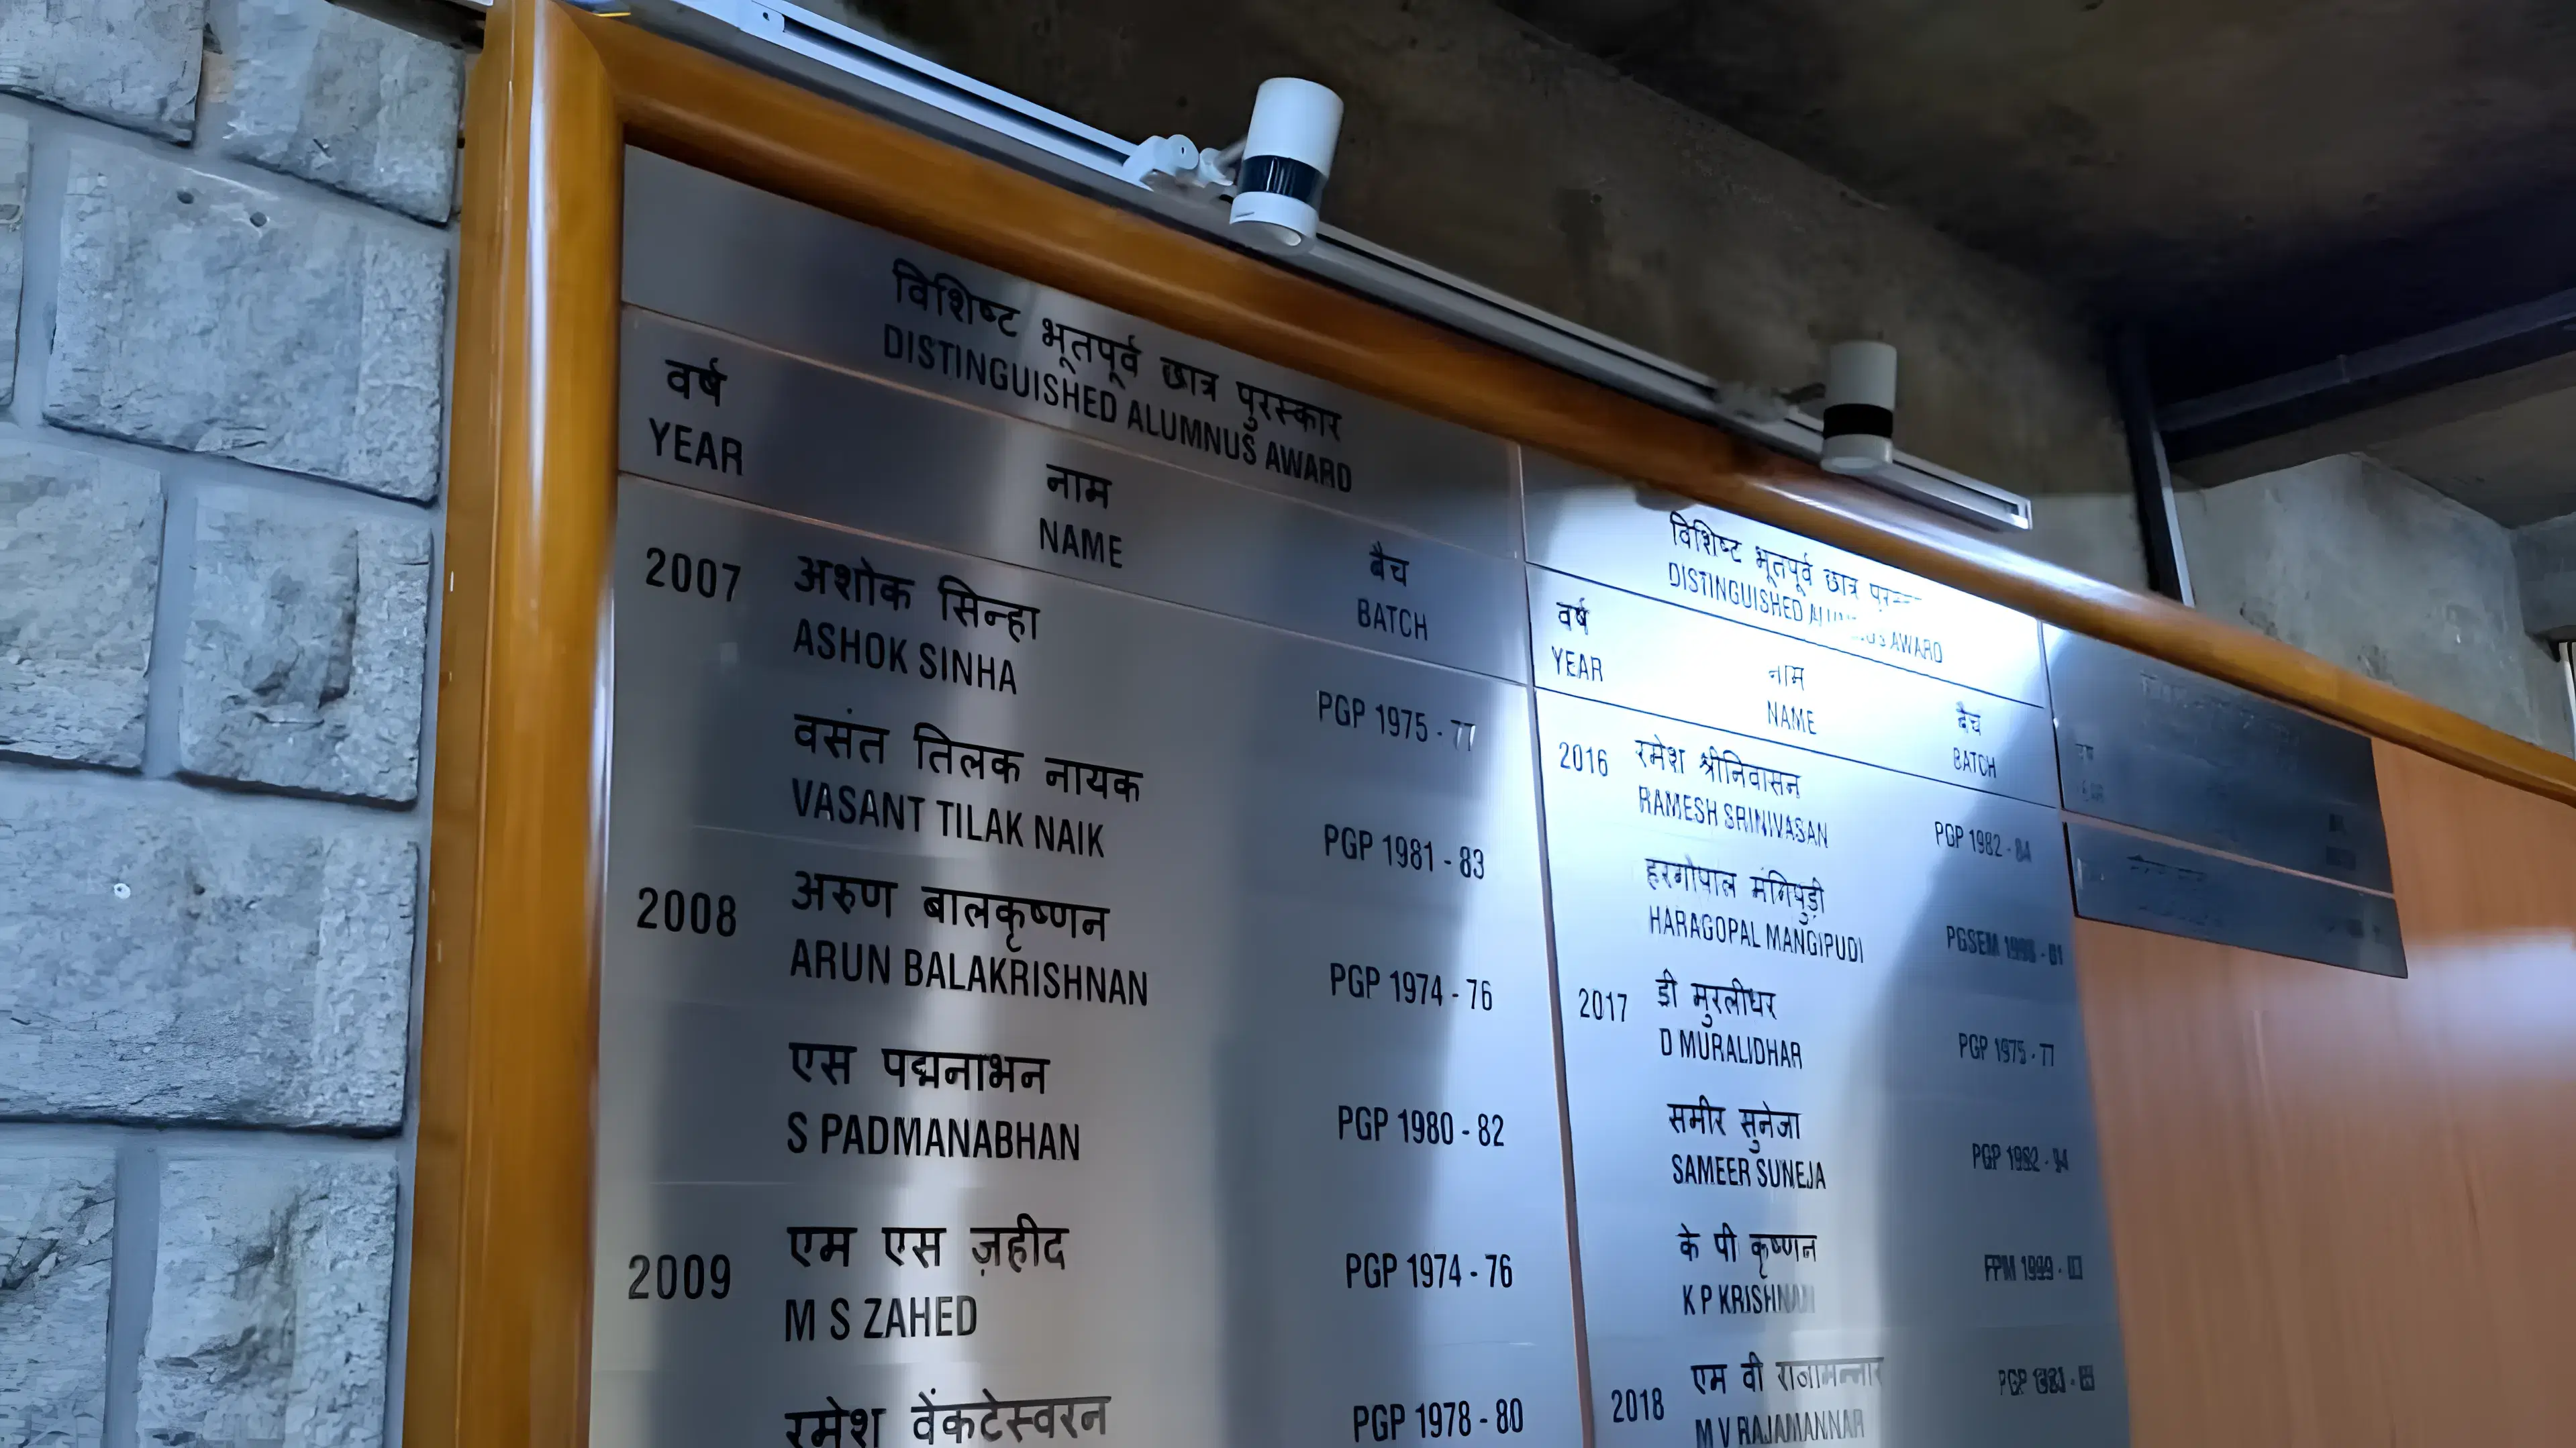 विशिष्ट भूतपूर्व छात्र पुरस्कार
DISTINGUISHED ALUMNUS AWARD
वर्ष नाम बैच
YEAR NAME BATCH
2007 अशोक सिन्हा
ASHOK SINHA PGP 1975 - 77
वसंत तिलक नायक
VASANT TILAK NAIK PGP 1981 - 83
2008 अरुण बालकृष्णन
ARUN BALAKRISHNAN PGP 1974 - 76
एस पद्मनाभन
S PADMANABHAN PGP 1980 - 82
2009 एम एस ज़हीद
M S ZAHED PGP 1974 - 76
रमेश वेंकटेस्वरन
PGP 1978 - 80
विशिष्ट भूतपूर्व छात्र
DISTINGUISHED ALUMNUS AWARD
वर्ष नाम बैच
YEAR NAME BATCH
2016 रमेश श्रीनिवासन
RAMESH SRINIVASAN PGP 1982 - 84
हरगोपाल मंगिपुड़ी
HARAGOPAL MANGIPUDI PGSEM
2017 डी मुरलीधर
D MURALIDHAR PGP 1975 - 77
समीर सुनेजा
SAMEER SUNEJA PGP
के पी कृष्णन
K P KRISHNAN FPM
2018 एम वी राजामन्नार
M V RAJAMANNAR PGP